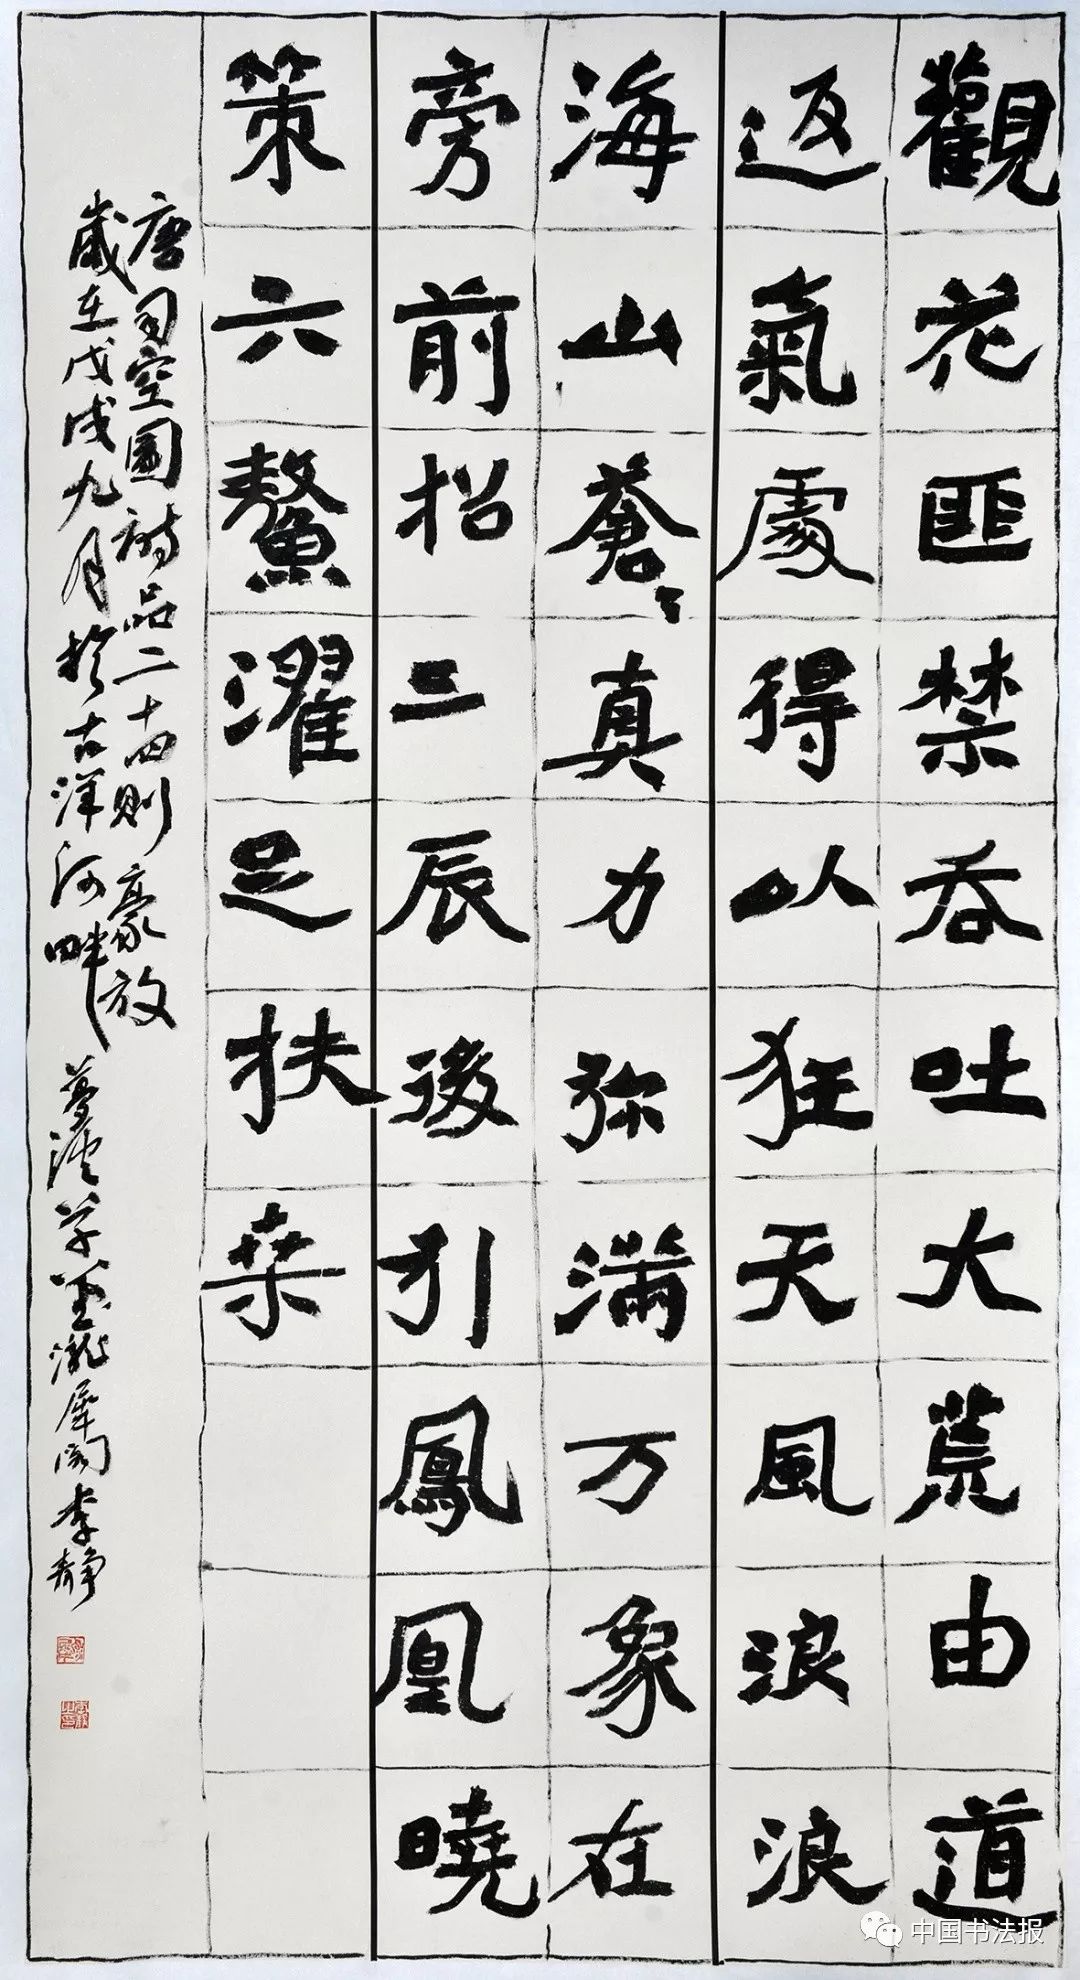 觀花匪禁吞吐大荒由道
返氣處得以狂天風浪浪
海山蒼〻真力弥滿万象在
旁前招三辰後引鳳凰曉
策六鰲濯足扶桒
唐司空圖詩品二十四則豪放
歲在戊戌九月於古洋河畔 李静
中国书法报